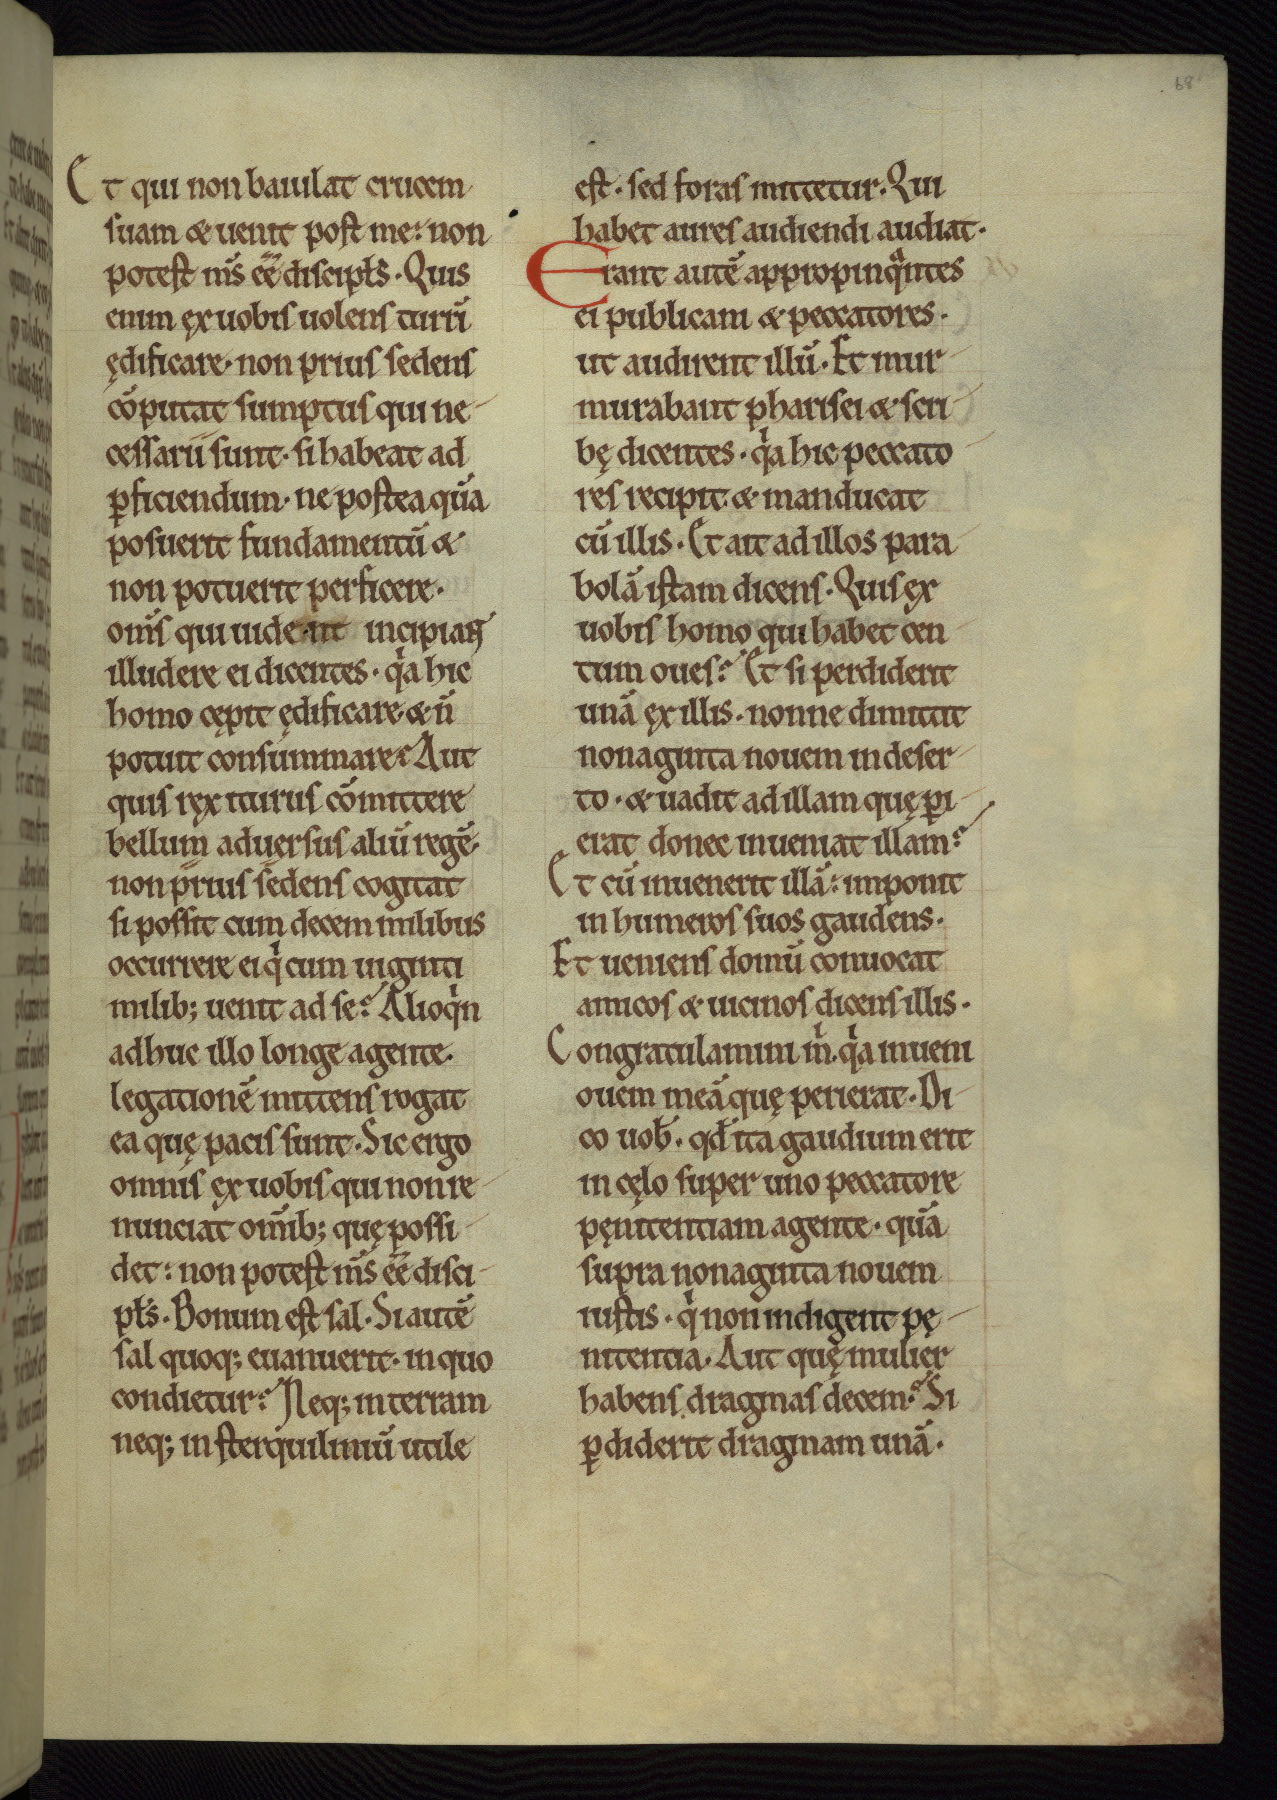 68
Et qui non baiulat crucem
suam & uenit post me: non
potest m̅s ee̅ discipl̅s. Quis
enim ex uobis uolens turri̅
ędificare. non prius sedens
co̅putat sumptus qui ne
cessarii sunt. si habeat ad
ꝑficiendum. ne postea qua̅
posuerit fundamentu̅ &
non potuerit perficere.
om̅s qui uident incipiant
illudere ei dicentes. qͥa hic
homo cępit ędificare. & n̅
potuit consummare? Aut
quis rex iturus co̅mittere
bellum aduersus aliu̅ rege̅.
non prius sedens cogitat
si possit cum decem milibus
occurrere ei qͥ cum uiginti
milib; uenit ad se? Alioqͥn
adhuc illo longe agente.
legatione̅ mittens rogat
ea quę pacis sunt. Sic ergo
omnis ex uobis qui non re
nunciat om̅ib; quę possi
det: non potest m̅s ee̅ disci
pl̅s. Bonum est sal. Si aute̅
sal quoq; euanuerit. in quo
condietur? Neq; in terram
neq; in sterquiliniu̅ utile
est. sed foras mittetur. Qui
habet aures audiendi audiat.
Erant aute̅ appropinqᵃntes
ei publicani & peccatores.
ut audirent illu̅. Et mur
murabant pharisei & scri
bę dicentes. qͥa hic peccato
res recipit & manducat
cu̅ illis. Et ait ad illos para
bola̅ istam dicens. Quis ex
uobis homo qui habet cen
tum oues? Et si perdiderit
una̅ ex illis. nonne dimittit
nonaginta nouem in deser
to. & uadit ad illam quę ꝑi
erat donec inueniat illam?
Et cu̅ inuenerit illa̅: imponit
in humeros suos gaudens.
Et ueniens domu̅ conuocat
amicos & uicinos dicens illis.
Congratulamini mͥ. qͥa inueni
ouem mea̅ quę perierat. Di
co uob̅. qd̅ ita gaudium erit
in cęlo super uno peccatore
pęnitentiam agente. qua̅
supra nonaginta nouem
iustis. qͥ non indigent pę
nitentia. Aut quę mulier
habens dragmas decem? Si
ꝑdiderit dragmam una̅.